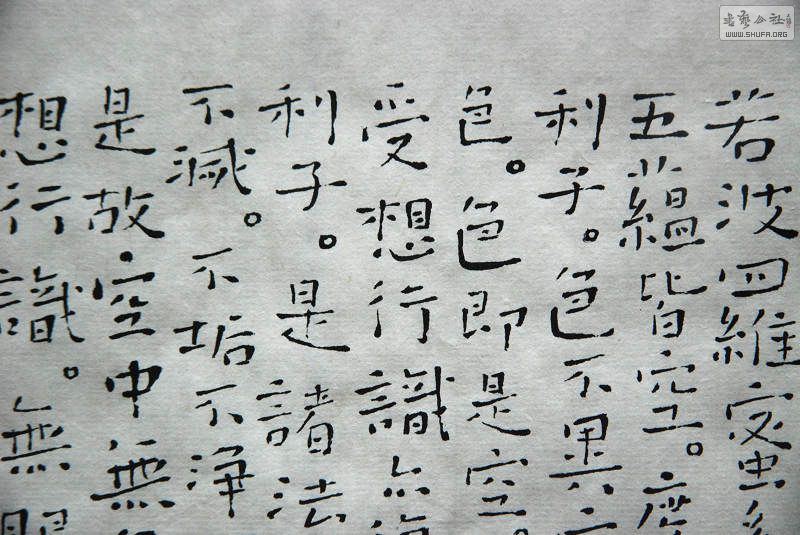 若波羅蜜
五蘊皆空。度
利子。色不異
色。色即是空。
受想行識亦
利子。是諸法
不減。不垢不淨
是故空中無
想行識。無眼
書藝公社
WWW.SHUFA.ORG